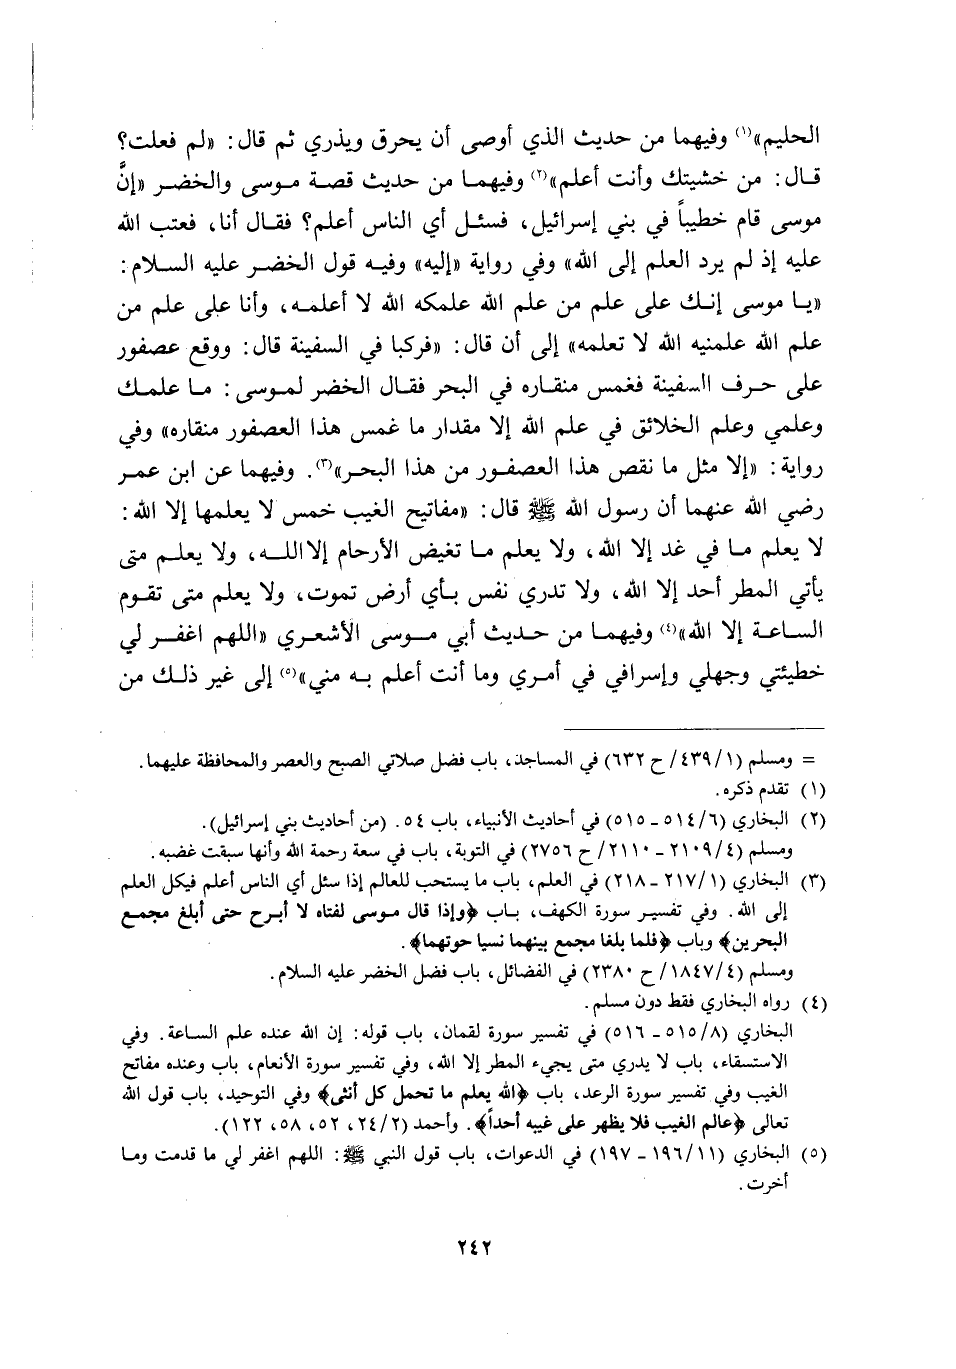 الحليم»(١) وفيهما من حديث الذي أوصى أن يحرق ويذري ثم قال: «لم فعلت؟
قال: من خشيتك وأنت أعلم»(٢) وفيهما من حديث قصة موسى والخضر «إنَّ
موسى قام خطيباً في بني إسرائيل، فسئل أي الناس أعلم؟ فقال أنا، فعتب الله
عليه إذ لم يرد العلم إلى الله» وفي رواية «إليه» وفيه قول الخضر عليه السلام:
«يا موسى إنك على علم من علم الله علمكه الله لا أعلمه، وأنا على علم من
علم الله علمنيه الله لا تعلمه» إلى أن قال: «فركبا في السفينة قال: ووقع عصفور
على حرف السفينة فغمس منقاره في البحر فقال الخضر لموسى: ما علمك
وعلمي وعلم الخلائق في علم الله إلا مقدار ما غمس هذا العصفور منقاره» وفي
رواية: «إلا مثل ما نقص هذا العصفور من هذا البحر»(٣). وفيهما عن ابن عمر
رضي الله عنهما أن رسول الله ﷺ قال: «مفاتيح الغيب خمس لا يعلمها إلا الله:
لا يعلم ما في غد إلا الله، ولا يعلم ما تغيض الأرحام إلا الله، ولا يعلم متى
يأتي المطر أحد إلا الله، ولا تدري نفس بأي أرض تموت، ولا يعلم متى تقوم
الساعة إلا الله»(٤) وفيهما من حديث أبي موسى الأشعري «اللهم اغفر لي
خطيئتي وجهلي وإسرافي في أمري وما أنت أعلم به مني»(٥) إلى غير ذلك من
= ومسلم (٤٣٩/١/ ح ٦٣٢) في المساجد، باب فضل صلاتي الصبح والعصر والمحافظة عليهما.
(١) تقدم ذكره.
(٢) البخاري (٥١٤/٦ - ٥١٥) في أحاديث الأنبياء، باب ٥٤. (من أحاديث بني إسرائيل).
ومسلم (٢١٠٩/٤ - ٢١١٠/ ح ٢٧٥٦) في التوبة، باب في سعة رحمة الله وأنها سبقت غضبه.
(٣) البخاري (٢١٧/١ - ٢١٨) في العلم، باب ما يستحب للعالم إذا سئل أي الناس أعلم فيكل العلم
إلى الله. وفي تفسير سورة الكهف، باب ﴿وإذا قال موسى لفتاه لا أبرح حتى أبلغ مجمع
البحرين﴾ وباب ﴿فلما بلغا مجمع بينهما نسيا حوتهما﴾.
ومسلم (١٨٤٧/٤/ ح ٢٣٨٠) في الفضائل، باب فضل الخضر عليه السلام.
(٤) رواه البخاري فقط دون مسلم.
البخاري (٥١٥/٨ - ٥١٦) في تفسير سورة لقمان، باب قوله: إن الله عنده علم الساعة. وفي
الاستسقاء، باب لا يدري متى يجيء المطر إلا الله، وفي تفسير سورة الأنعام، باب وعنده مفاتح
الغيب وفي تفسير سورة الرعد، باب ﴿الله يعلم ما تحمل كل أنثى﴾ وفي التوحيد، باب قول الله
تعالى ﴿عالم الغيب فلا يظهر على غيبه أحداً﴾. وأحمد (٢٤/٢، ٥٢، ٥٨، ١٢٢).
(٥) البخاري (١٩٦/١١ - ١٩٧) في الدعوات، باب قول النبي ﷺ: اللهم اغفر لي ما قدمت وما
أخرت.
٢٤٢